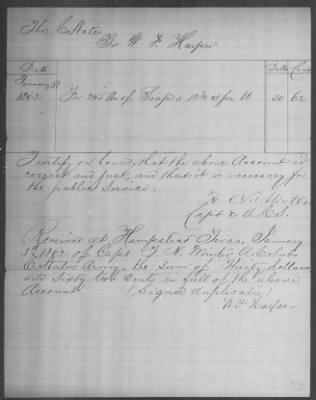 The C States
To W. F. Harper
Date Dolls Cents
January 3rd
1862 For 245 lbs of Soap @ 12½ c per lb 30 62
I certify on honor, that the above Account is
correct and just, and that it is necessary for
the public service.
Capt & A.C.S.
Received at Hempstead Texas, January
3rd 1862 of Capt. Minter A.C. Subs
C States Army, the sum of Thirty dollars
and Sixty two cents in full of the above
Account (Signed duplicates)
W F Harper